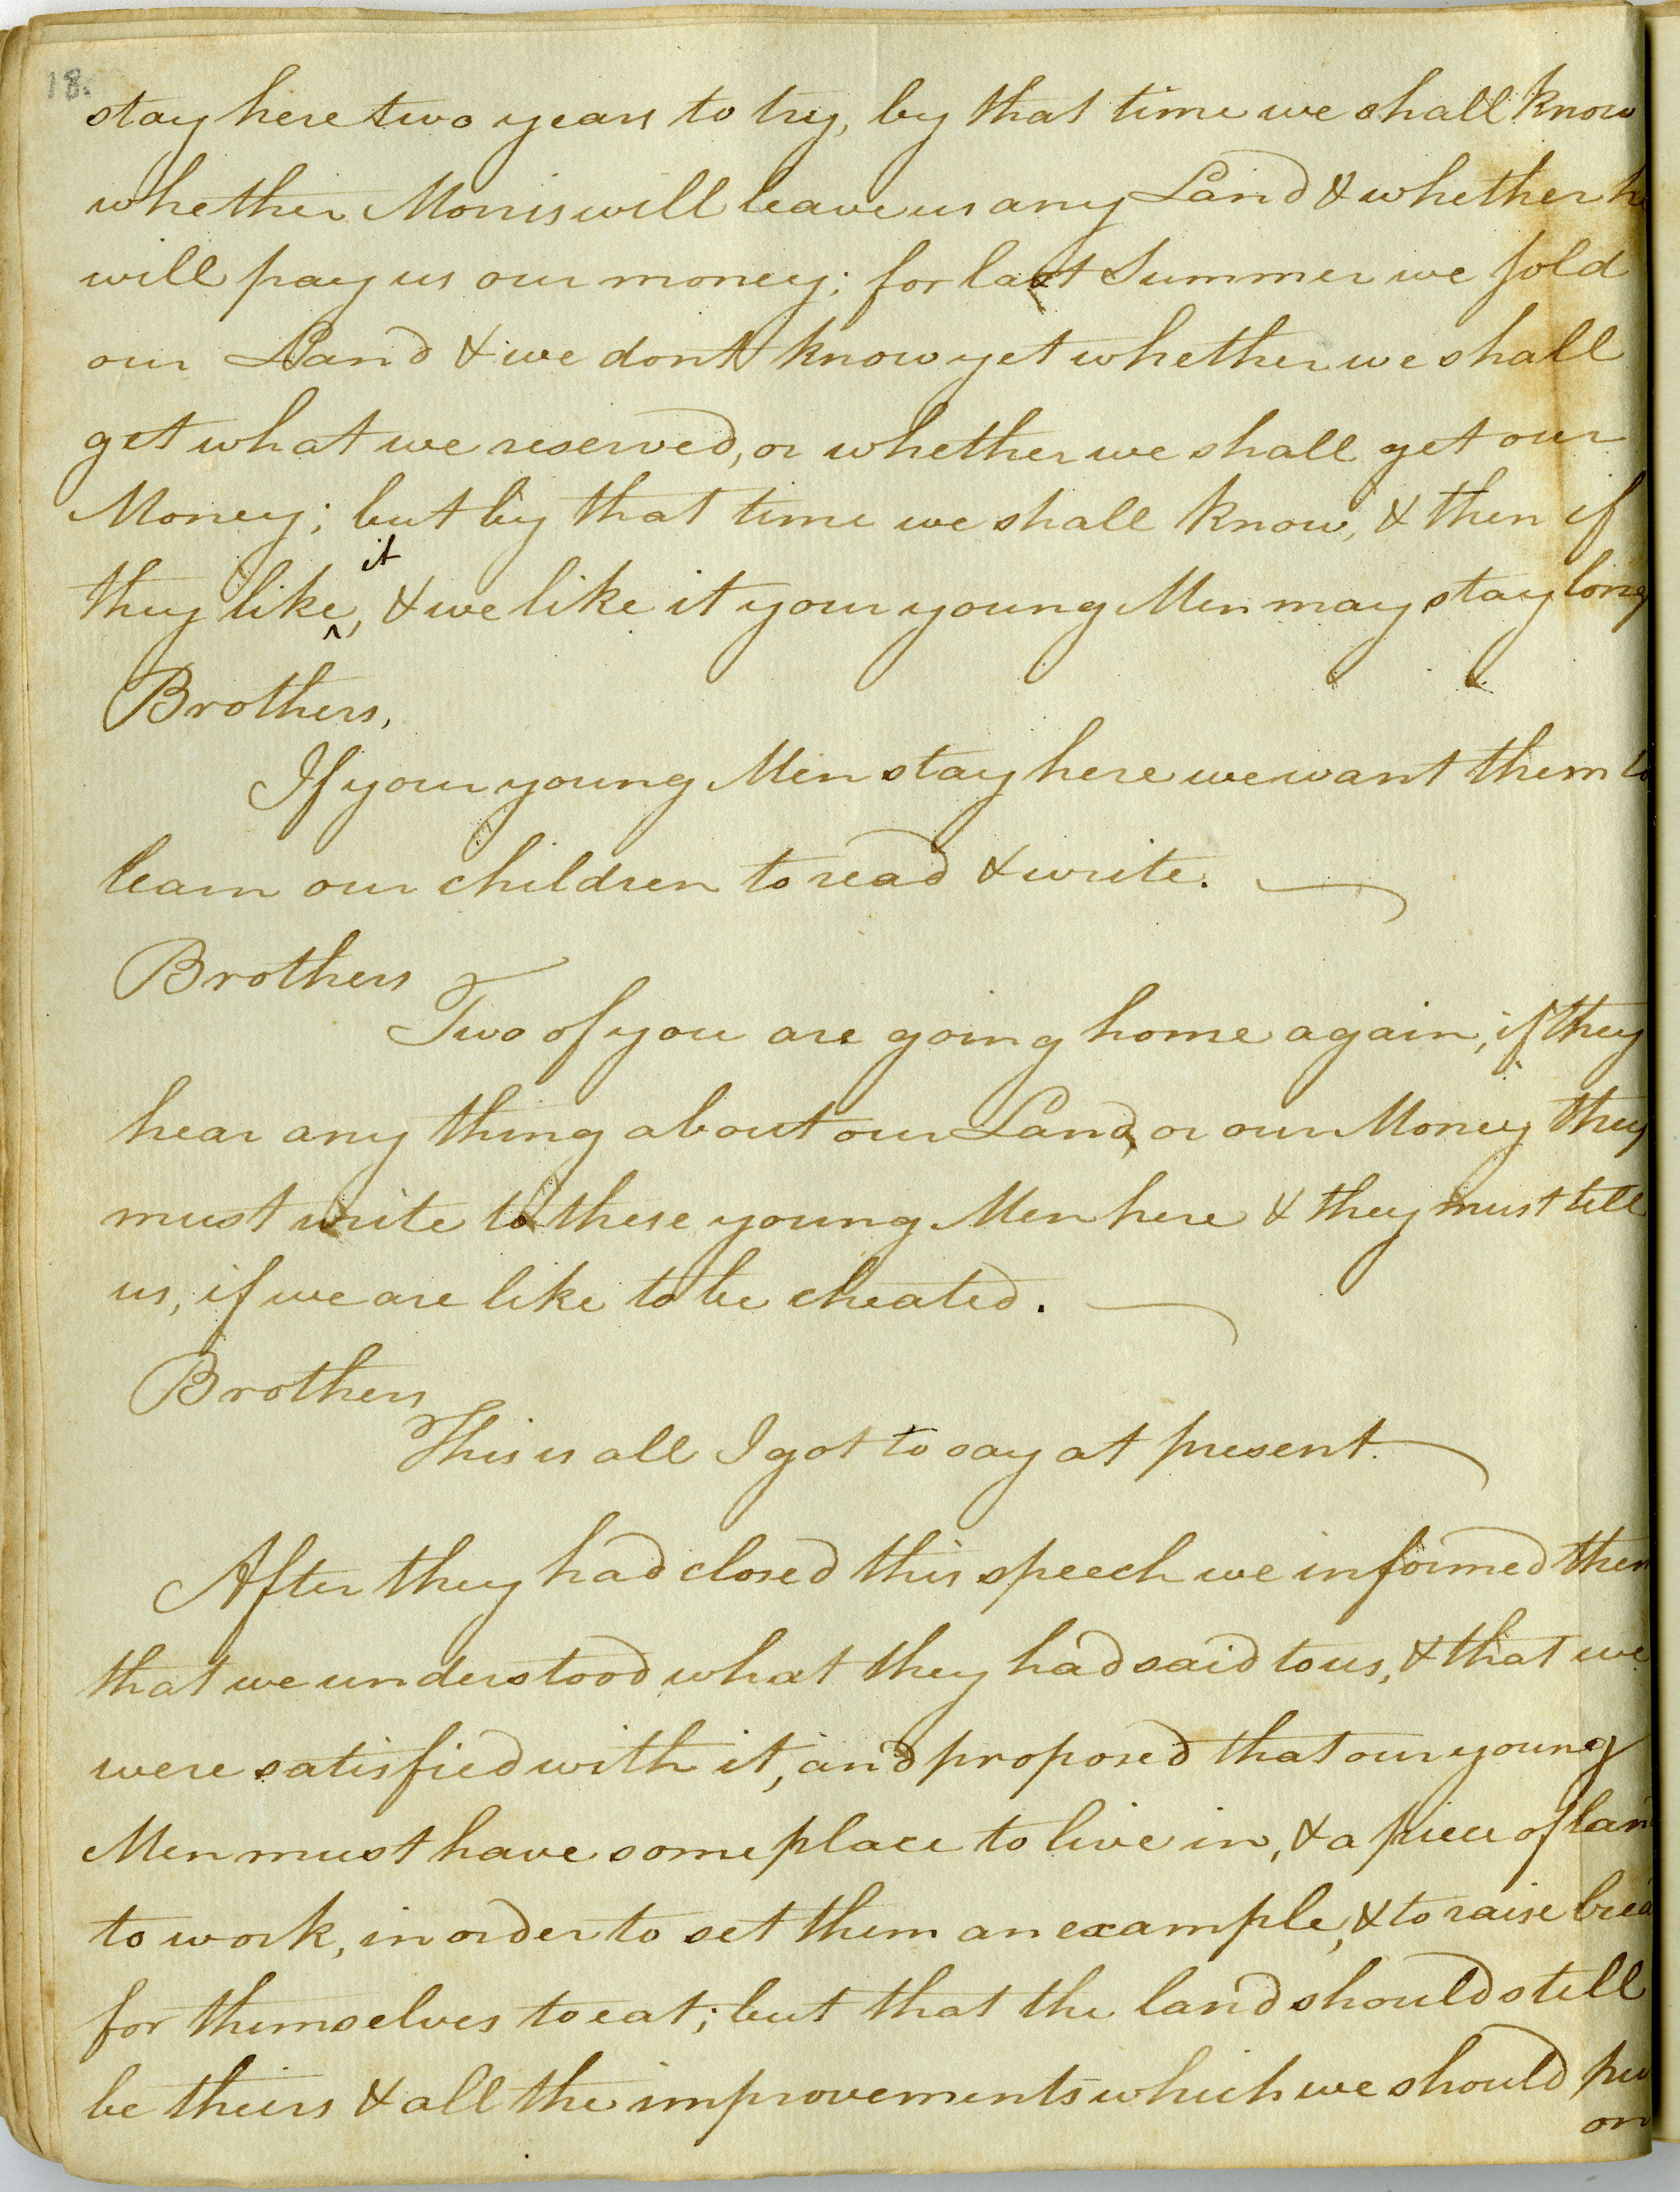 18.
stay here two years to try, by that time we shall know
whether Morris will leave us any Land & whether he
will pay us our money; for last Summer we sold
our Land & we dont know yet whether we shall
get what we reserved, or whether we shall get our
Money; but by that time we shall know, & then if
it
they like ^, & we like it your young Men may stay long
Brothers,
If your young Men stay here we want them to
learn our children to read & write.
Brothers
Two of you are going home again, if they
hear any thing about our Land, or our Money they
must write to these young Men here & they must tell
us, if we are like to be cheated.
Brothers
This is all I got to say at present.
After they had closed this speech we informed them
that we understood what they had said to us, & that we
were satisfied with it, and proposed that our young
Men must have some place to live in, & a piece of lan
to work, in order to set them an example, & to raise brea
for themselves to eat; but that the land should still
be theirs & all the improvements which we should pu
on